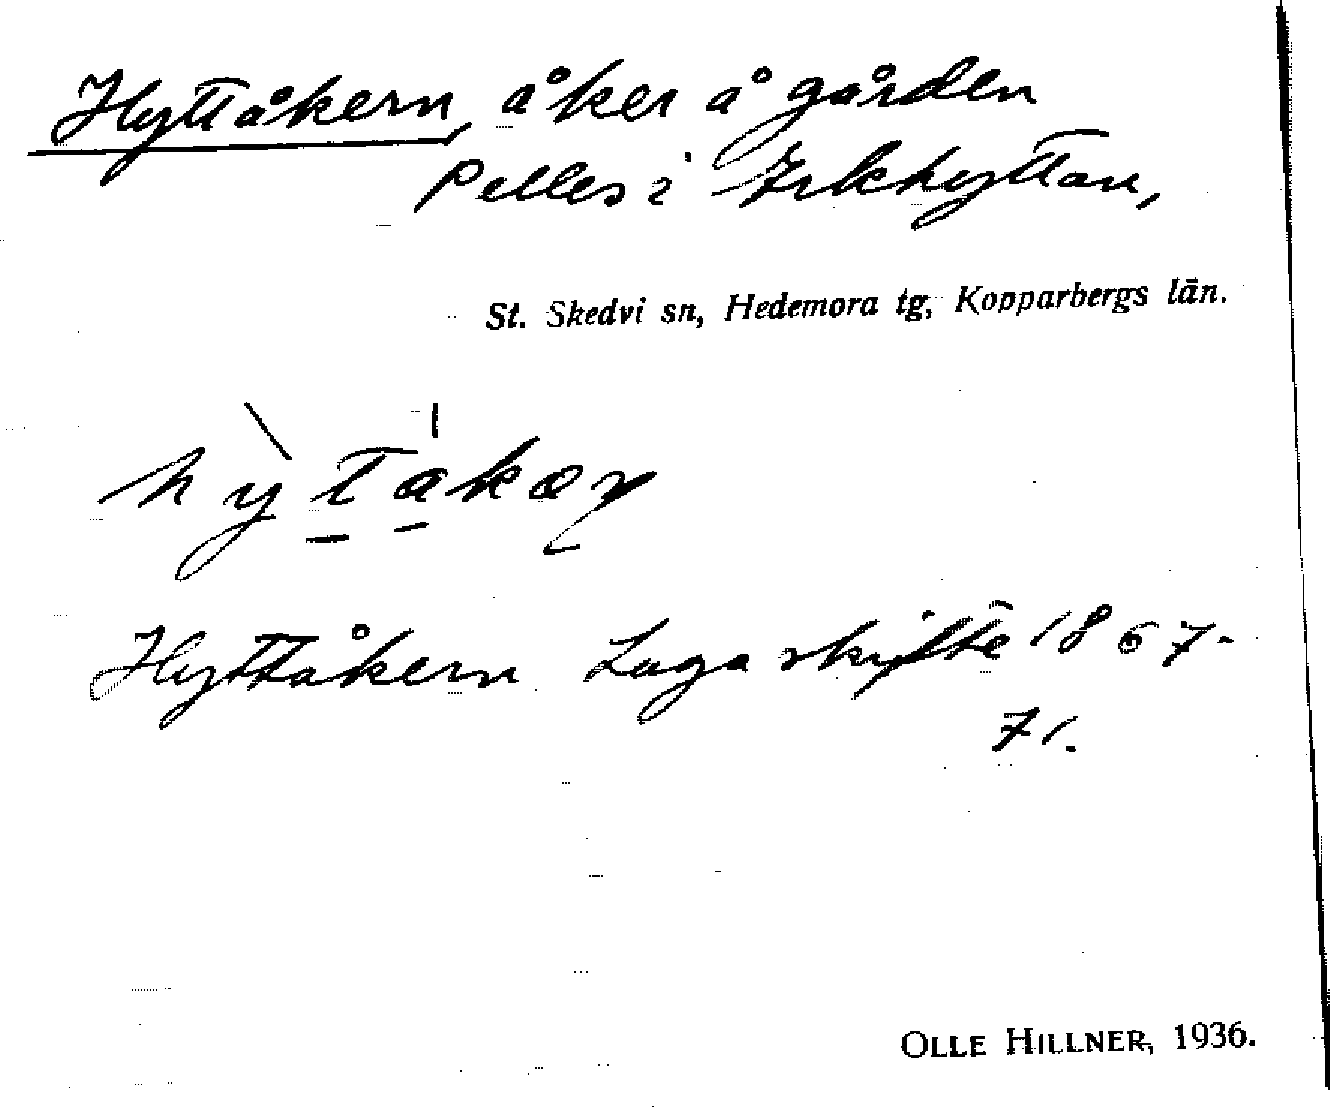 Hyttåkern, åker å gården
Pelles i Irkhyttan,
St. Skedvi sn, Hedemora tg, Kopparbergs län.
Hyttåkern Laga skifte 1867-
71.
OLLE HILLNER, 1936.